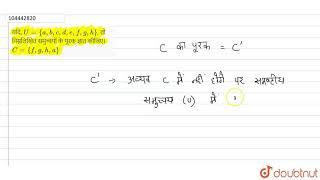 104442820
यदि, U = {a, b, c, d, e, f, g, h}, तो
निम्नलिखित समुच्चयों के पूरक ज्ञात कीजिए।
C = {f, g, h, a}
C का पूरक = C'
C' → अवयव C में नहीं होने पर समष्टीय
समुच्चय (U) में
doubtnut